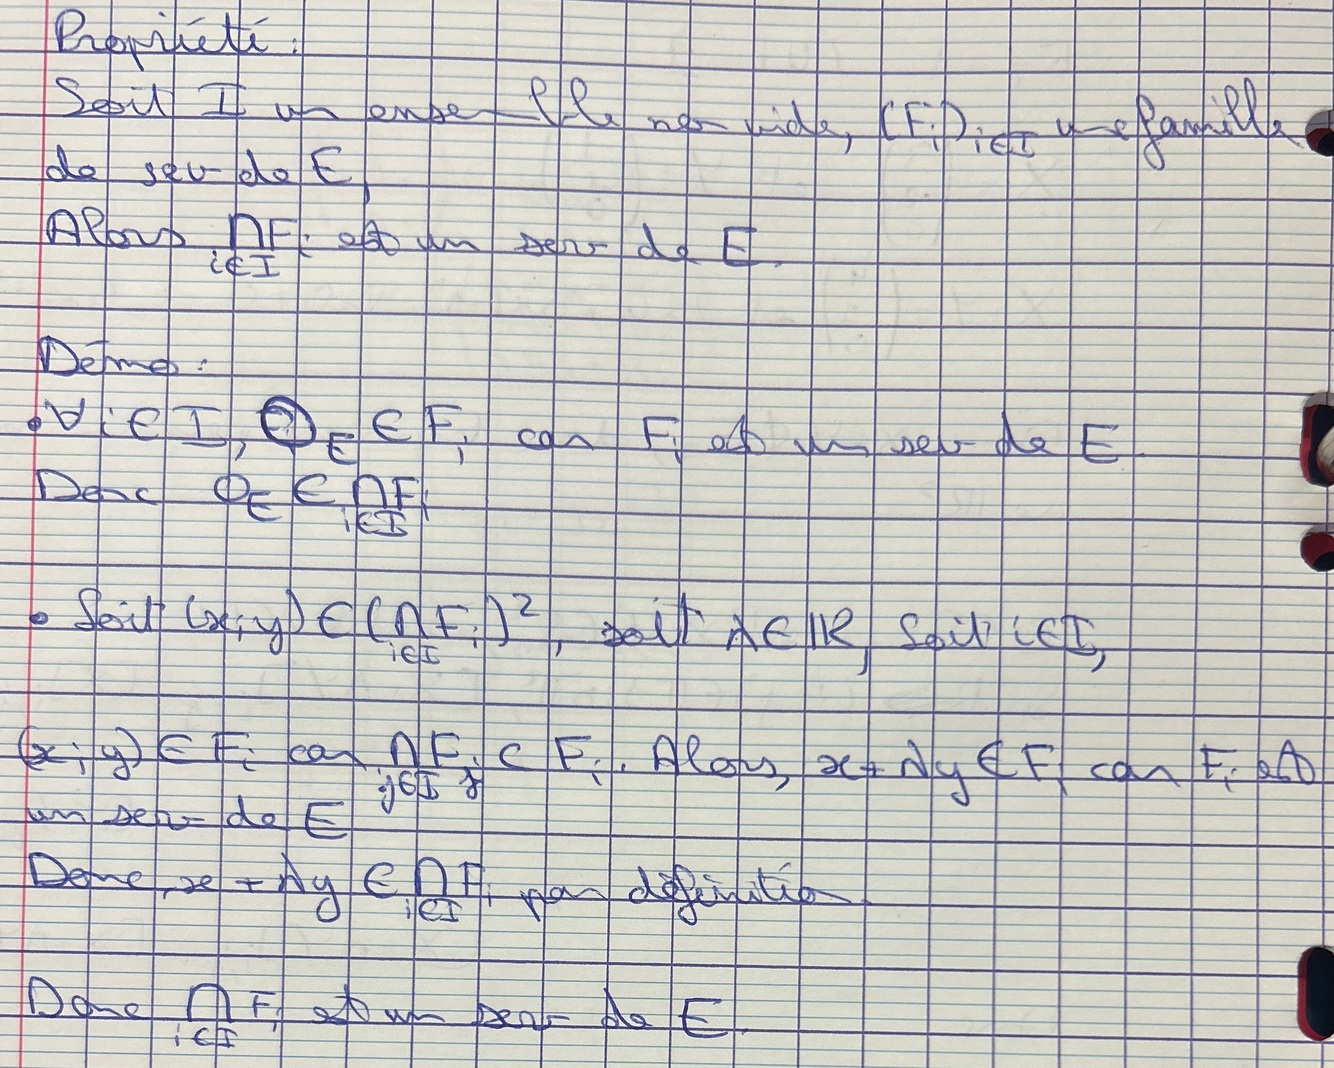 Propriété :
Soit I un ensemble non vide, (Fᵢ)ᵢ∈I une famille
de sev de E,
Alors ⋂ᵢ∈I Fᵢ est un sev de E.
Démo :
• ∀ i ∈ I, 0_E ∈ Fᵢ car Fᵢ est un sev de E
Donc 0_E ∈ ⋂ᵢ∈I Fᵢ
• Soit (x;y) ∈ (⋂ᵢ∈I Fᵢ)², soit λ ∈ ℝ, Soit i ∈ I,
(x;y) ∈ Fᵢ car ⋂ⱼ∈I Fⱼ ⊂ Fᵢ. Alors, x + λy ∈ Fᵢ car Fᵢ est
un sev de E
Donc, x + λy ∈ ⋂ᵢ∈I Fᵢ par définition
Donc ⋂ᵢ∈I Fᵢ est un sev de E